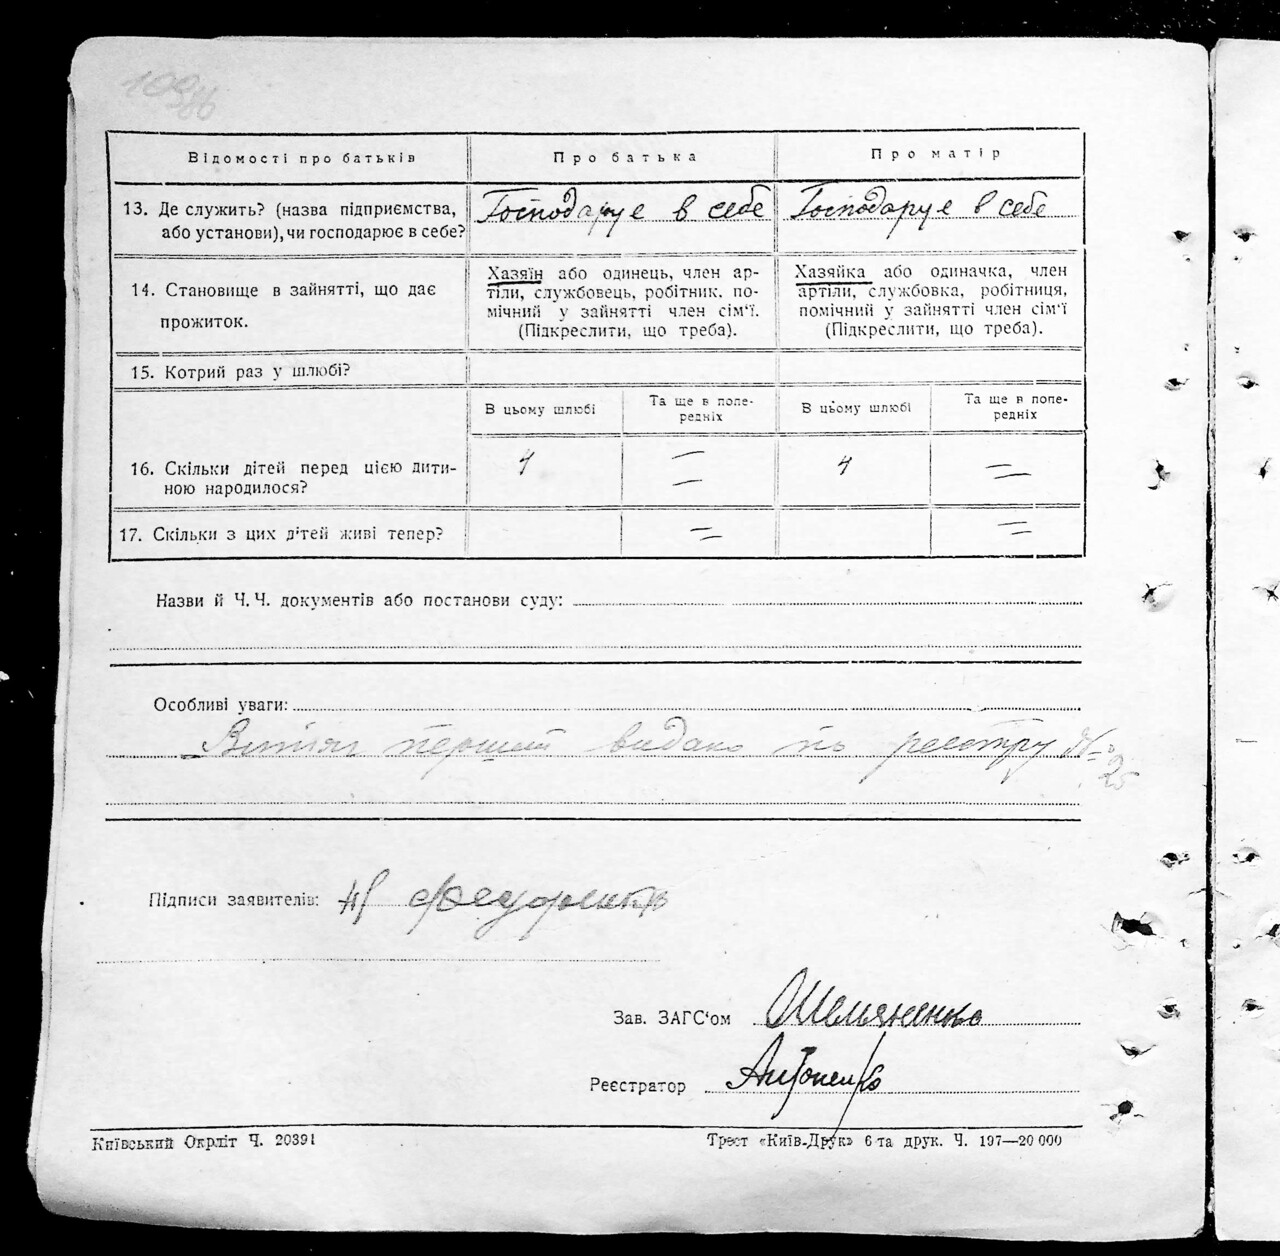 Відомості про батьків
Про батька
Про матір
13. Де служить? (назва підприємства,
або установи), чи господарює в себе?
Господарує в себе
Господарує в себе
14. Становище в зайнятті, що дає
прожиток.
Хазяїн або одинець, член ар-
тіли, службовець, робітник. по-
мічний у зайнятті член сім'ї.
(Підкреслити, що треба).
Хазяйка або одиначка, член
артіли, службовка, робітниця,
помічний у зайнятті член сім'ї
(Підкреслити, що треба).
15. Котрий раз у шлюбі?
В цьому шлюбі
Та ще в попе-
редніх
В цьому шлюбі
Та ще в попе-
редніх
16. Скільки дітей перед цією дити-
ною народилося?
4
4
17. Скільки з цих дітей живі тепер?
Назви й Ч. Ч. документів або постанови суду:
Особливі уваги:
Витяг перший видано по реєстру №
25
Підписи заявителів:
Зав. ЗАГС'ом Шемяненко
Реєстратор Антоненко
Київський Окрліт Ч. 20391
Трест «Київ-Друк» 6-та друк. Ч. 197—20 000